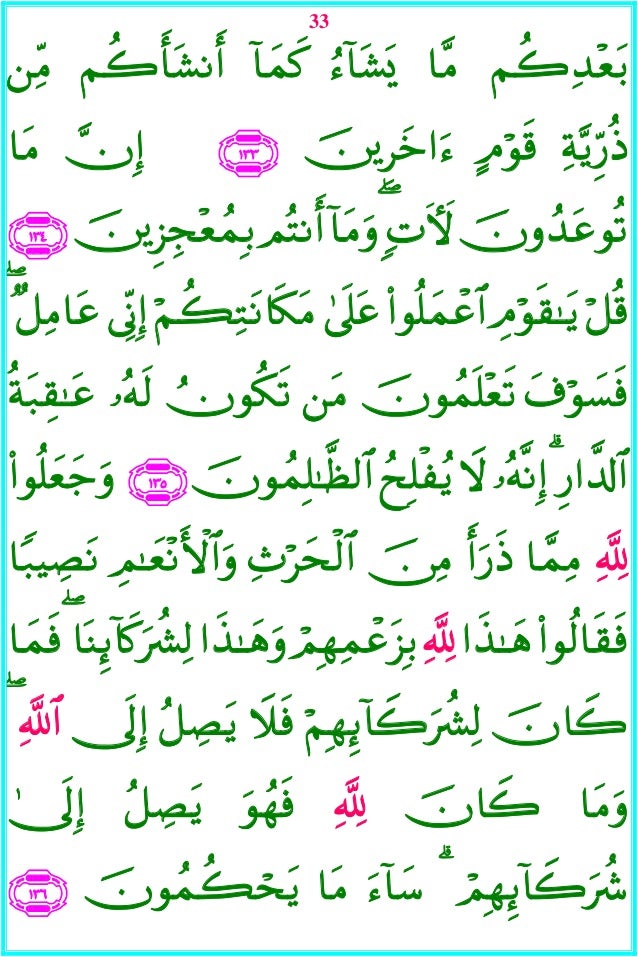 33
بَعْدِكُم مَّا يَشَآءُ كَمَآ أَنشَأَكُم مِّن
ذُرِّيَّةِ قَوْمٍ ءَاخَرِينَ ١٣٣ إِنَّ مَا
تُوعَدُونَ لَأَتٍۖ وَمَآ أَنتُم بِمُعْجِزِينَ ١٣٤
قُلْ يَـٰقَوْمِ ٱعْمَلُوا۟ عَلَىٰ مَكَانَتِكُمْ إِنِّى عَامِلٌۖ
فَسَوْفَ تَعْلَمُونَ مَن تَكُونُ لَهُۥ عَـٰقِبَةُ
ٱلدَّارِۗ إِنَّهُۥ لَا يُفْلِحُ ٱلظَّـٰلِمُونَ ١٣٥ وَجَعَلُوا۟
لِلَّهِ مِمَّا ذَرَأَ مِنَ ٱلْحَرْثِ وَٱلْأَنْعَـٰمِ نَصِيبًا
فَقَالُوا۟ هَـٰذَا لِلَّهِ بِزَعْمِهِمْ وَهَـٰذَا لِشُرَكَآئِنَاۖ فَمَا
كَانَ لِشُرَكَآئِهِمْ فَلَا يَصِلُ إِلَى ٱللَّهِۖ
وَمَا كَانَ لِلَّهِ فَهُوَ يَصِلُ إِلَىٰ
شُرَكَآئِهِمْۗ سَآءَ مَا يَحْكُمُونَ ١٣٦